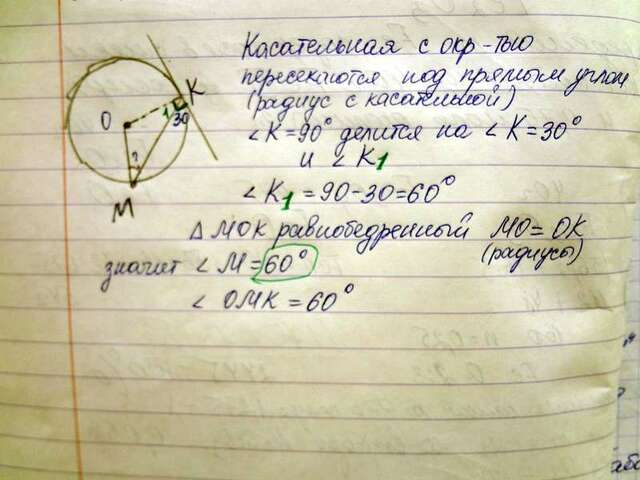 Касательная с окр-тью
пересекаются под прямым углом
(радиус с касательной)
∠K=90° делится на ∠K=30°
и ∠K1
∠K1=90-30=60°
△ МОК равнобедренный МО=ОК
(радиусы)
значит ∠M=60°
∠ OMK=60°
O
K
1
30
?
M